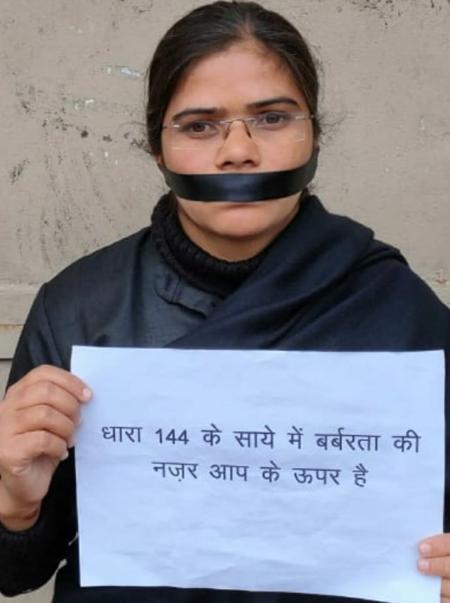 धारा 144 के साये में बर्बरता की
नज़र आप के ऊपर है